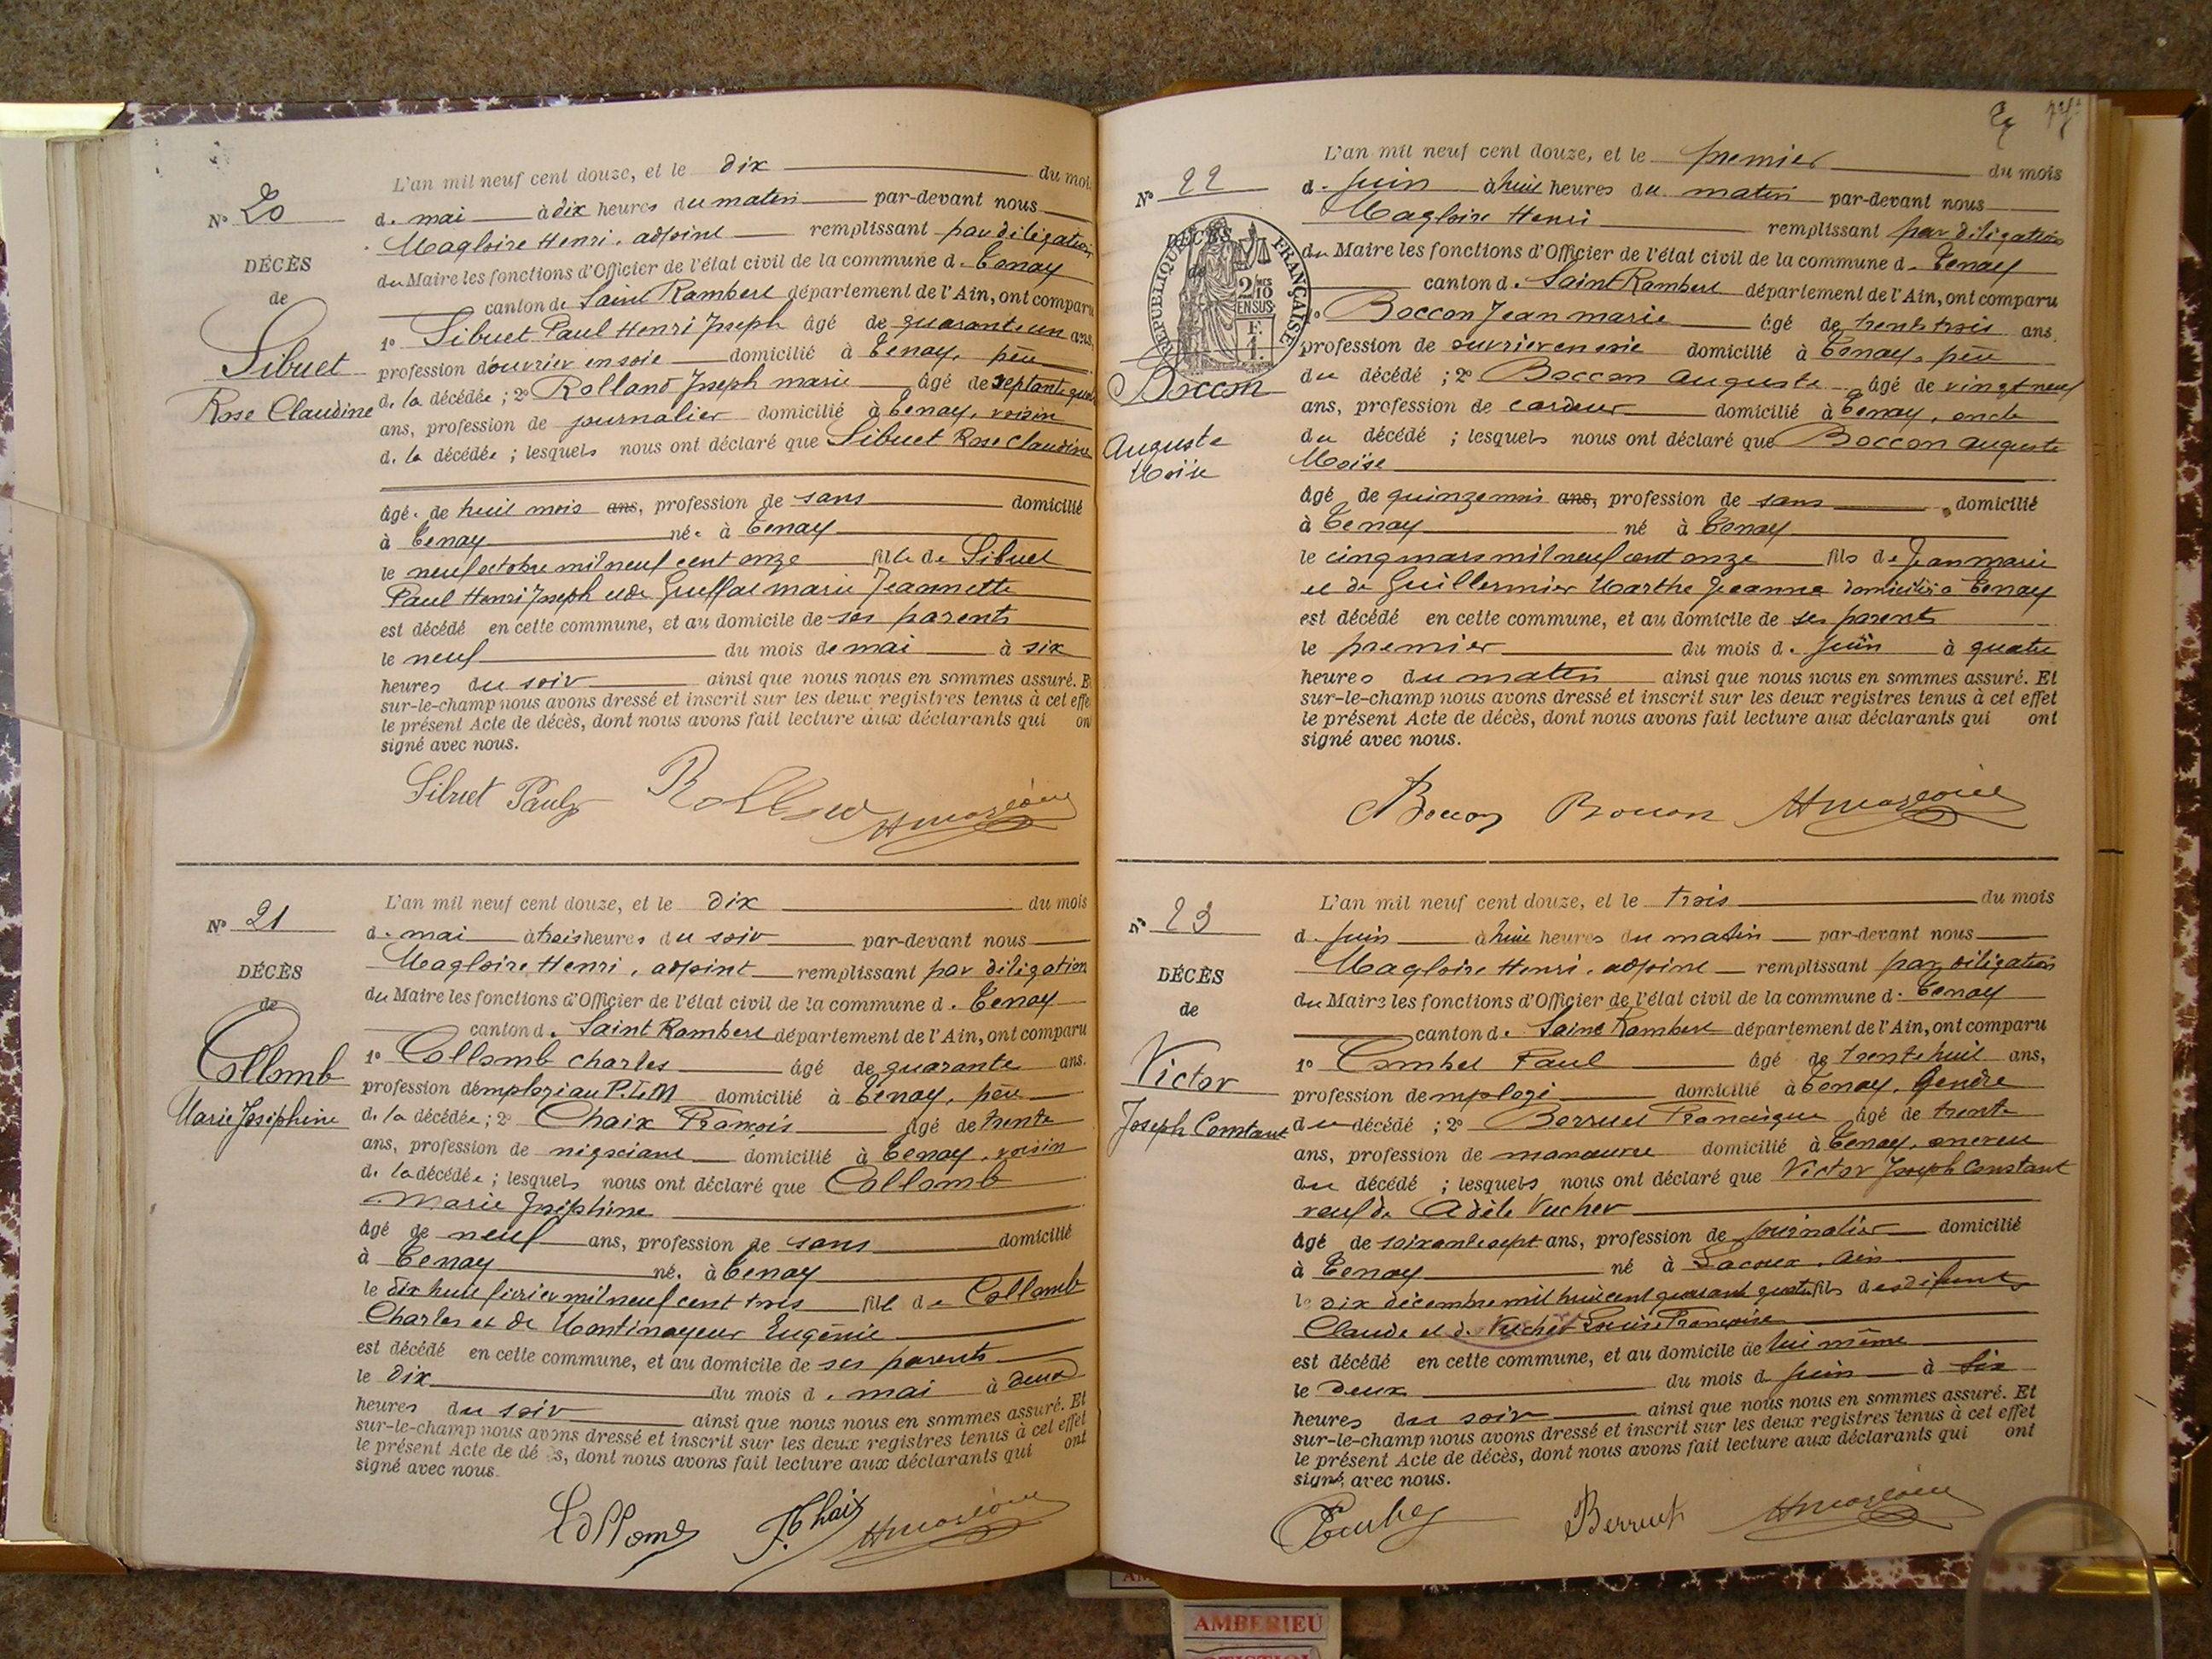 L'an mil neuf cent douze, et le dix du mois
Nº 20
d. mai à dix heures du matin par-devant nous
Magloire Henri, adjoint remplissant par délégation
DÉCÈS
du Maire les fonctions d'Officier de l'état civil de la commune d. Tenay
de
canton de Saint Rambert département de l'Ain, ont comparu
Sibuet
1º Sibuet Paul Henri Joseph âgé de quarante un ans,
profession d'ouvrier en soie domicilié à Tenay, père
Rose Claudine
d. la décédée ; 2º Rolland Joseph marie âgé de septante
ans, profession de journalier domicilié à Tenay, voisin
d. la décédée ; lesquels nous ont déclaré que Sibuet Rose Claudine
âgé. de huit mois ans, profession de sans domicilié
à Tenay née à Tenay
le neuf octobre mil neuf cent onze fille de Sibuet
Paul Henri Joseph et de marie Jeannette
est décédé en cette commune, et au domicile de ses parents
le neuf du mois de mai à six
heures du soir ainsi que nous nous en sommes assuré. Et
sur-le-champ nous avons dressé et inscrit sur les deux registres tenus à cet effe
le présent Acte de décès, dont nous avons fait lecture aux déclarants qui on
signé avec nous.
Sibuet Paul Rolland
L'an mil neuf cent douze, et le dix du mois
Nº 21
d. mai à trois heures du soir par-devant nous
Magloire Henri, adjoint remplissant par délégation
DÉCÈS
du Maire les fonctions d'Officier de l'état civil de la commune d. Tenay
de
canton d. Saint Rambert département de l'Ain, ont comparu
Collomb
1º Collomb Charles âgé de quarante ans.
profession d'employé au P.L.M domicilié à Tenay, père
Marie Joséphine
d. la décédée ; 2º Chaix François âgé de trente
ans, profession de négociant domicilié à Tenay, voisin
d. la décédée ; lesquels nous ont déclaré que Collomb
Marie Joséphine
âgé de neuf ans, profession de sans domicilié
à Tenay né. à Tenay
le dix huit février mil neuf cent trois fille de Collomb
Charles et de Eugénie
est décédé en cette commune, et au domicile de ses parents
le dix du mois d. mai à deux
heures du soir ainsi que nous nous en sommes assuré. Et
sur-le-champ nous avons dressé et inscrit sur les deux registres tenus à cet effet
le présent Acte de dé s, dont nous avons fait lecture aux déclarants qui ont
signé avec nous.
Collomb F. Chaix
L'an mil neuf cent douze, et le premier du mois
Nº 22
d. Juin à huit heures du matin par-devant nous
Magloire Henri remplissant par délégation
RÉPUBLIQUE FRANÇAISE
2 MES 10 EN SUS
F. 1.
DÉCÈS
de
du Maire les fonctions d'Officier de l'état civil de la commune d. Tenay
canton d. Saint Rambert département de l'Ain, ont comparu
1º Boccon Jean marie âgé de trente trois ans,
profession de ouvrier en soie domicilié à Tenay, père
Boccon
du décédé ; 2º Boccon Auguste âgé de vingt neuf
ans, profession de cardeur domicilié à Tenay, oncle
Auguste
du décédé ; lesquels nous ont déclaré que Boccon Auguste
Moïse
Moïse
âgé de quinze mois ans, profession de sans domicilié
à Tenay né à Tenay
le cinq mars mil neuf cent onze fils de Jean marie
et de Guillermier Marthe Jeanne domiciliés à Tenay
est décédé en cette commune, et au domicile de ses parents
le premier du mois d. Juin à quatre
heures du matin ainsi que nous nous en sommes assuré. Et
sur-le-champ nous avons dressé et inscrit sur les deux registres tenus à cet effet
le présent Acte de décès, dont nous avons fait lecture aux déclarants qui ont
signé avec nous.
Boccon Boccon
L'an mil neuf cent douze, et le trois du mois
Nº 23
d. Juin à huit heures du matin par-devant nous
Magloire Henri, adjoint remplissant par délégation
DÉCÈS
du Maire les fonctions d'Officier de l'état civil de la commune d. Tenay
de
canton d. Saint Rambert département de l'Ain, ont comparu
Victor
1º Paul âgé de trente huit ans,
profession d'employé domicilié à Tenay, Gendre
Joseph Constant
du décédé ; 2º Berruet âgé de trente
ans, profession de manœuvre domicilié à Tenay,
du décédé ; lesquels nous ont déclaré que Victor Joseph Constant
veuf de Adèle Vucher
âgé de soixante sept ans, profession de journalier domicilié
à Tenay né à Lacoux, Ain
le dix décembre mil huit cent quarante quatre fils des défunts
Claude et d. Vuchet Louise Françoise
est décédé en cette commune, et au domicile de lui même
le deux du mois d. Juin à six
heures du soir ainsi que nous nous en sommes assuré. Et
sur-le-champ nous avons dressé et inscrit sur les deux registres tenus à cet effet
le présent Acte de décès, dont nous avons fait lecture aux déclarants qui ont
signé, avec nous.
Berruet
AMBERIEU